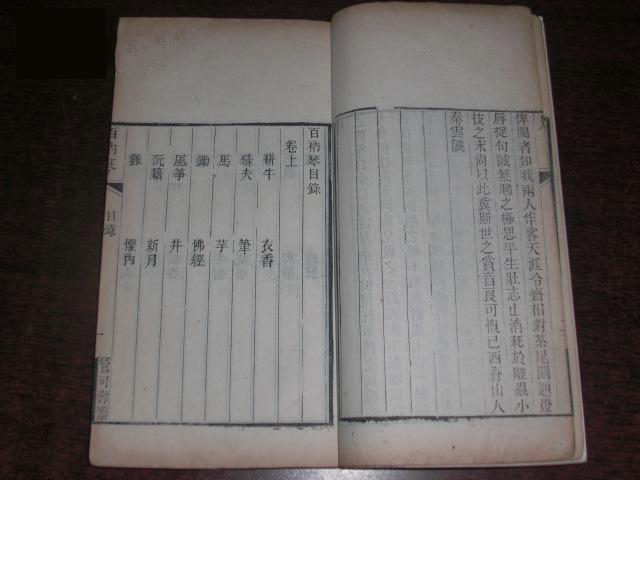 俾閱者知我兩人作客天涯令齋相對茶尾闌題燈
唇捉句誠無聊之極思平生壯志止消耗於雕蟲小
技之末尚以此冀斯世之賞音良可慨已酉脊山人
秦雲識
百衲琴目錄
卷上
耕牛 衣香
蠢夫 筆
馬 芋
鋤 佛經
風箏 井
阮籍 新月
雞 懼內
百衲琴
目錄
一